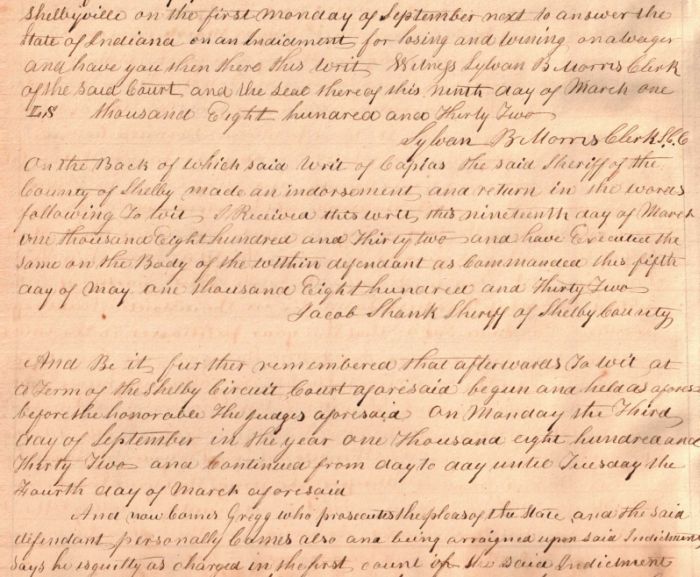 Shelbyville on the first Monday of September next to answer the
State of Indiana on an Indicment for losing and wining on a wager
and have you then there this writ Witness Sylvan B Morris Clerk
of the said Court and the seal thereof this ninth day of March one
LS thousand Eight hundred and Thirty Two
Sylvan B Morris Clerk S.C.C
On the Back of which said Writ of Capias the said Sheriff of the
County of Shelby made an indorsement and return in the words
following To wit I Received this writ this nineteenth day of March
one thousand Eight hundred and Thirty two and have Executed the
same on the Body of the within defendant as Commanded this fifth
day of May one thousand Eight hundred and Thirty Two
Jacob Shank Sheriff of Shelby County
And Be it further remembered that afterwards To wit at
a Term of the Shelby Circuit Court aforesaid begun and held as afores
before the honorable The Judges aforesaid on Monday the Third
day of September in the year one Thousand eight hundred and
Thirty Two and Continued from day to day until Tuesday the
Fourth day of March aforesaid
And now Comes Gregg who prosecutes the pleas of the State and the said
defendant personally Comes also and being arraigned upon said Indictment
says he is guilty as charged in the first count of the said Indictment